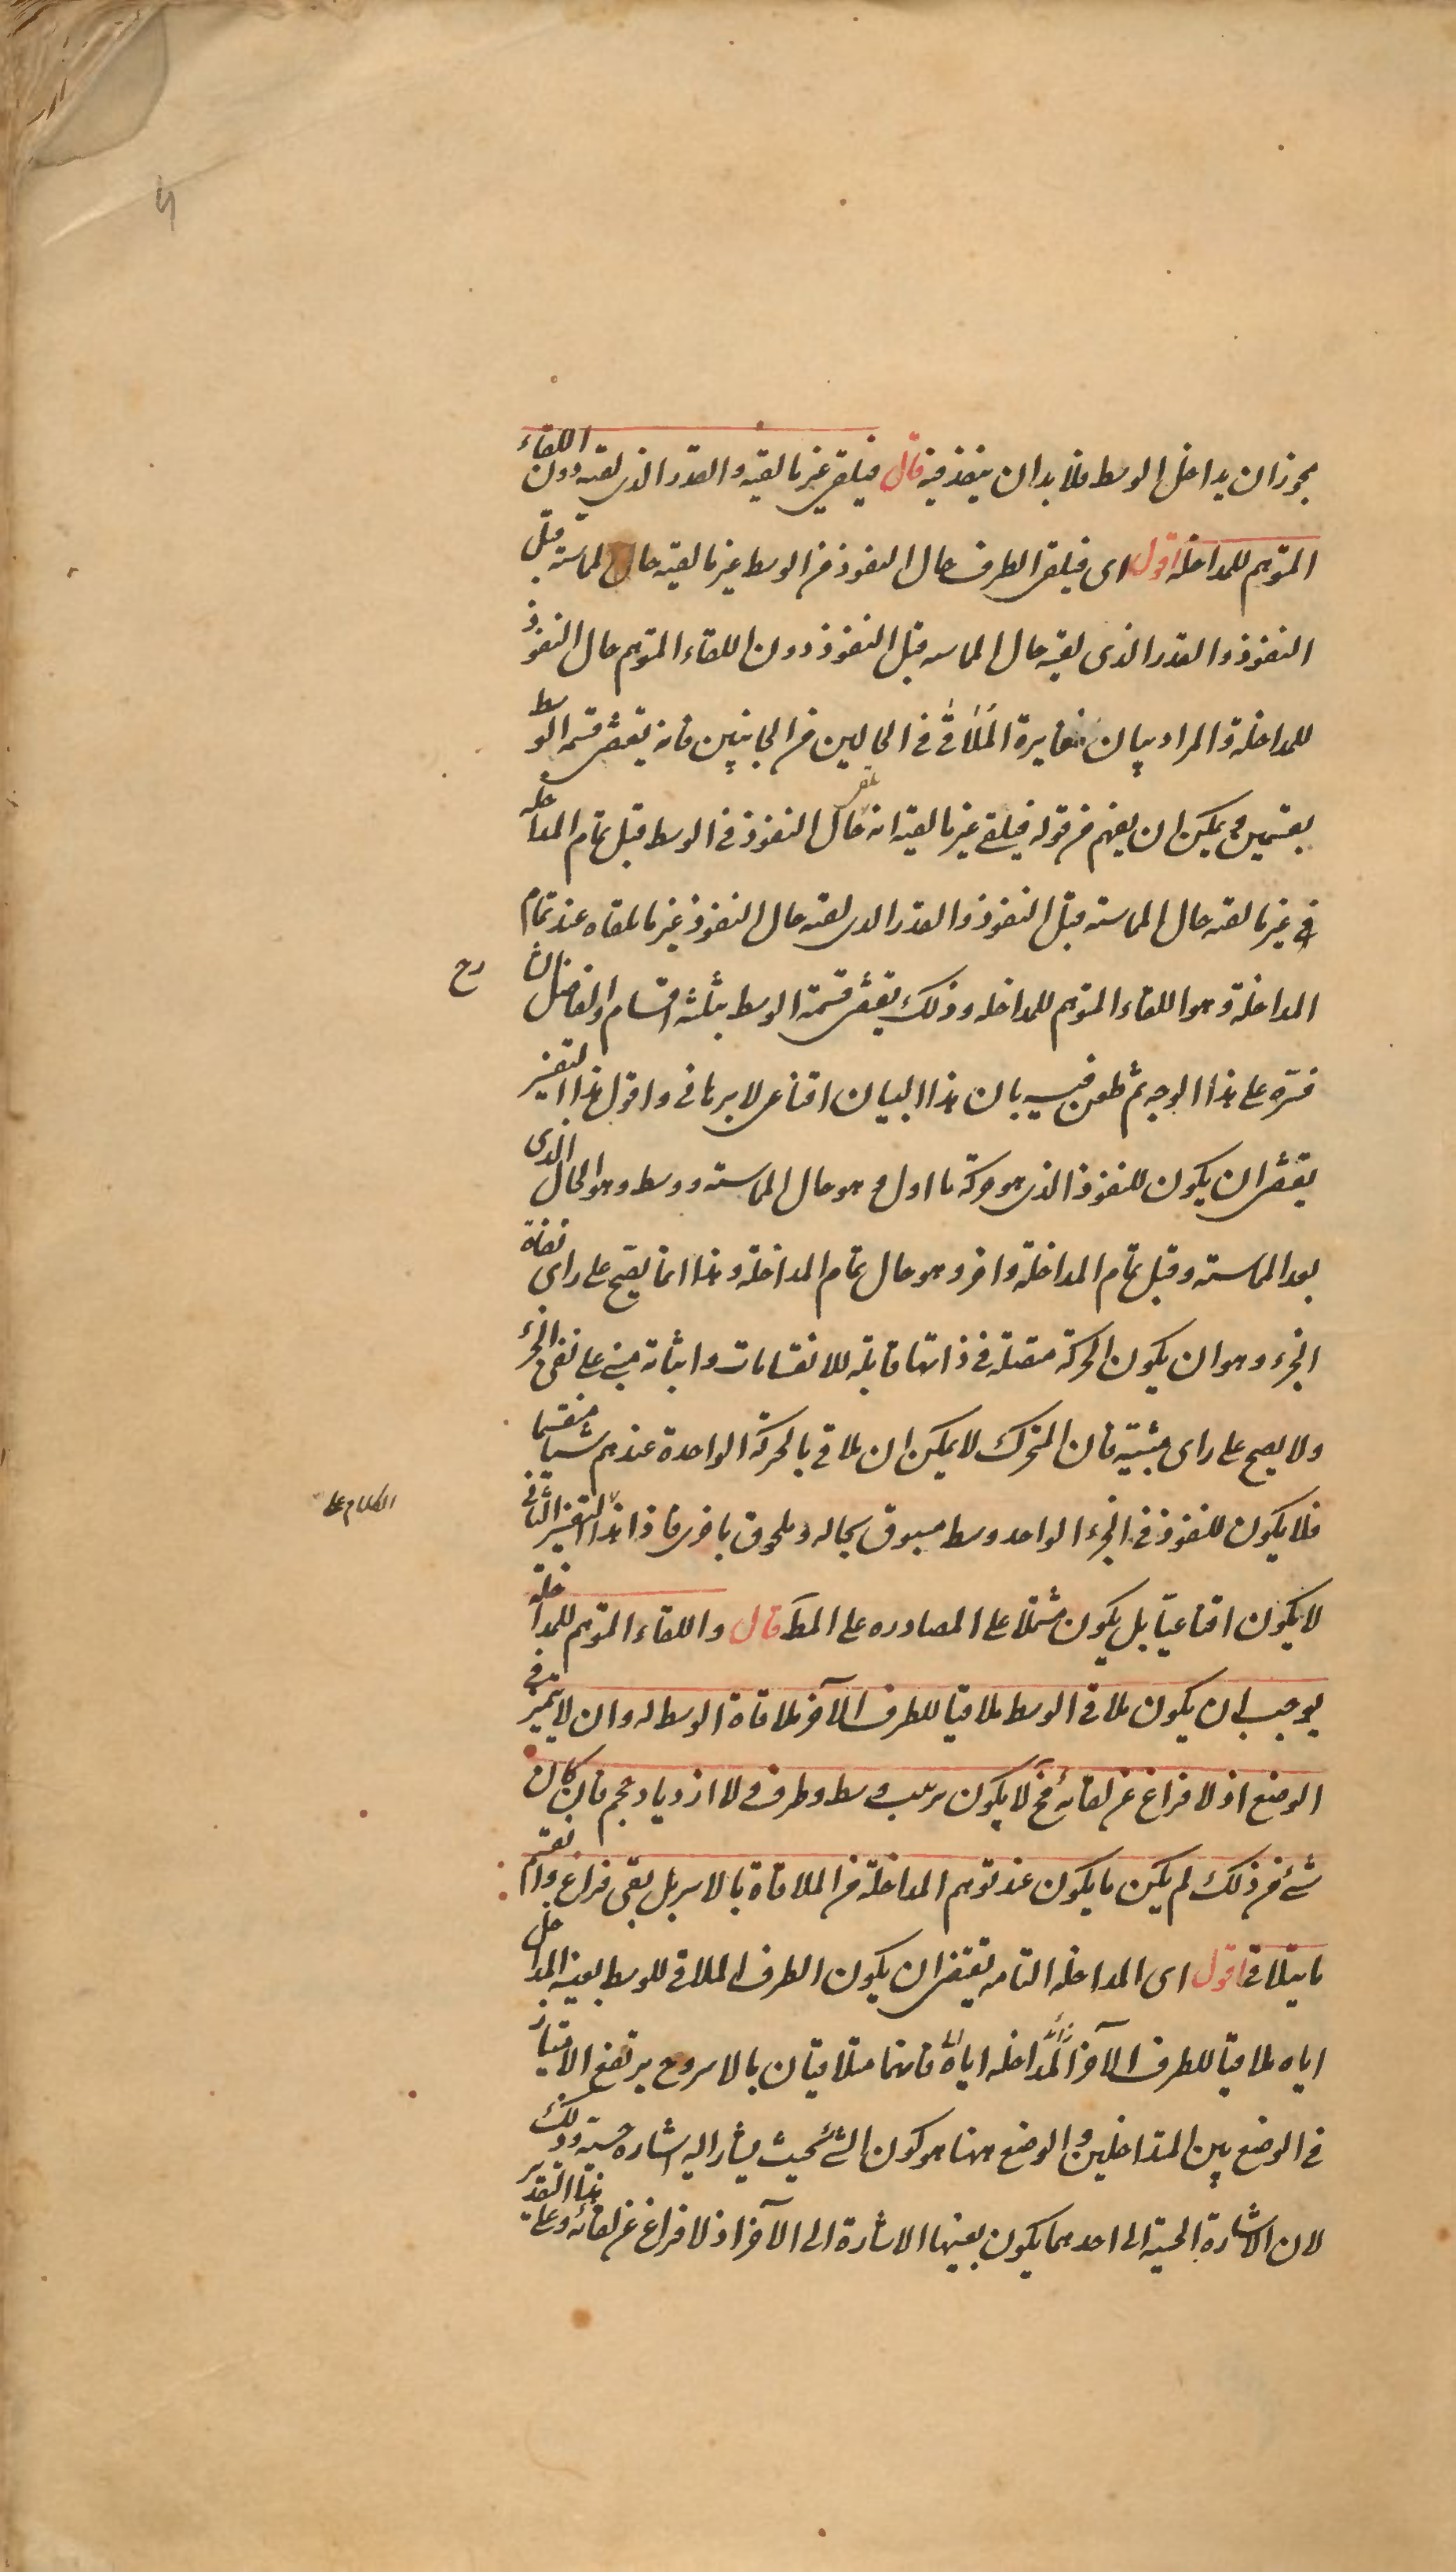 يجوز ان يداخل الوسط فلا بد ان ينفذ فيه قال فيلقى غير ما لقيه والقدر الذى لقيه دون اللقاء
المتوهم للمداخلة اقول اى فيلقى الطرف حال النفوذ من الوسط غير ما لقيه حال المماسة قبل
النفوذ والقدر الذى لقيه حال المماسه قبل النفوذ دون اللقاء المتوهم حال النفوذ
للمداخلة والمراد بيان مغايرة الملاقى فى الحالين من الجانبين فانه يقتضى قسمة الوسط
بقسمين ويمكن ان يفهم من قوله فيلقى غير ما لقيه انه حال النفوذ فى الوسط قبل تمام المداخلة
غير ما لقيه حال المماسته قبل النفوذ والقدر الذى لقيه حال النفوذ غير ما يلقاه عند تمام
المداخلة وهو اللقاء المتوهم للمداخله وذلك يقتضى قسمة الوسط بثلثه اقسام والفاضل الشارح
فسّره على هذا الوجه ثم طعن فيه بان هذا البيان اقناعى لا برهانى واقول هذا التفسير
يقتضى ان يكون للنفوذ الذى هو حركة ما اول وهو حال المماسته ووسط وهو الحال الذى
بعد المماسته وقبل تمام المداخلة واخر وهو حال تمام المداخلة وهذا انما يصح على راى نفاة
الجزء وهو ان يكون الحركة متصلة فى ذاتها قابله للانقسامات واثباته مبنى على نفى الجزء
ولا يصح على راى مثبتيه فان المتحرك لا يمكن ان يلاقى بالحركة الواحدة عندهم شيئا منقسما
فلا يكون للنفوذ فى الجزء الواحد وسط مسبوق بحاله وملحوق باخرى فاذا هذا التفسير الثانى
الكلام على
لا يكون اقناعيّا بل يكون مشتملا على المصادره على المط قال واللقاء المتوهم للمداخلة
يوجب ان يكون ملاقى الوسط ملاقيا للطرف الآخر ملاقاة الوسط له وان لا يتميز فى
الوضع اذ لا فراغ عن لقائه فح لا يكون ترتيب وسط وطرف ولا ازدياد حجم فان كان
شئ من ذلك لم يكن ما يكون عند توهم المداخلة من الملاقاة بالاسر بل بقى فراغ وانقسم
ما يتلاقى اقول اى المداخله التامه يقتضى ان يكون الطرف الملاقى للوسط بعينه المداخل
اياه ملاقيا للطرف الآخر المداخله اياه فانهما متلاقيان بالاسر وح يرتفع الامتياز
فى الوضع بين المتداخلين والوضع ههنا هو كون الشئ بحيث يشار اليه اشاره حسية وذلك
لان الاشارة الحسيّة الى احدهما يكون بعينها الاشارة الى الآخر اذ لا فراغ عن لقائه وعلى هذا التقدير